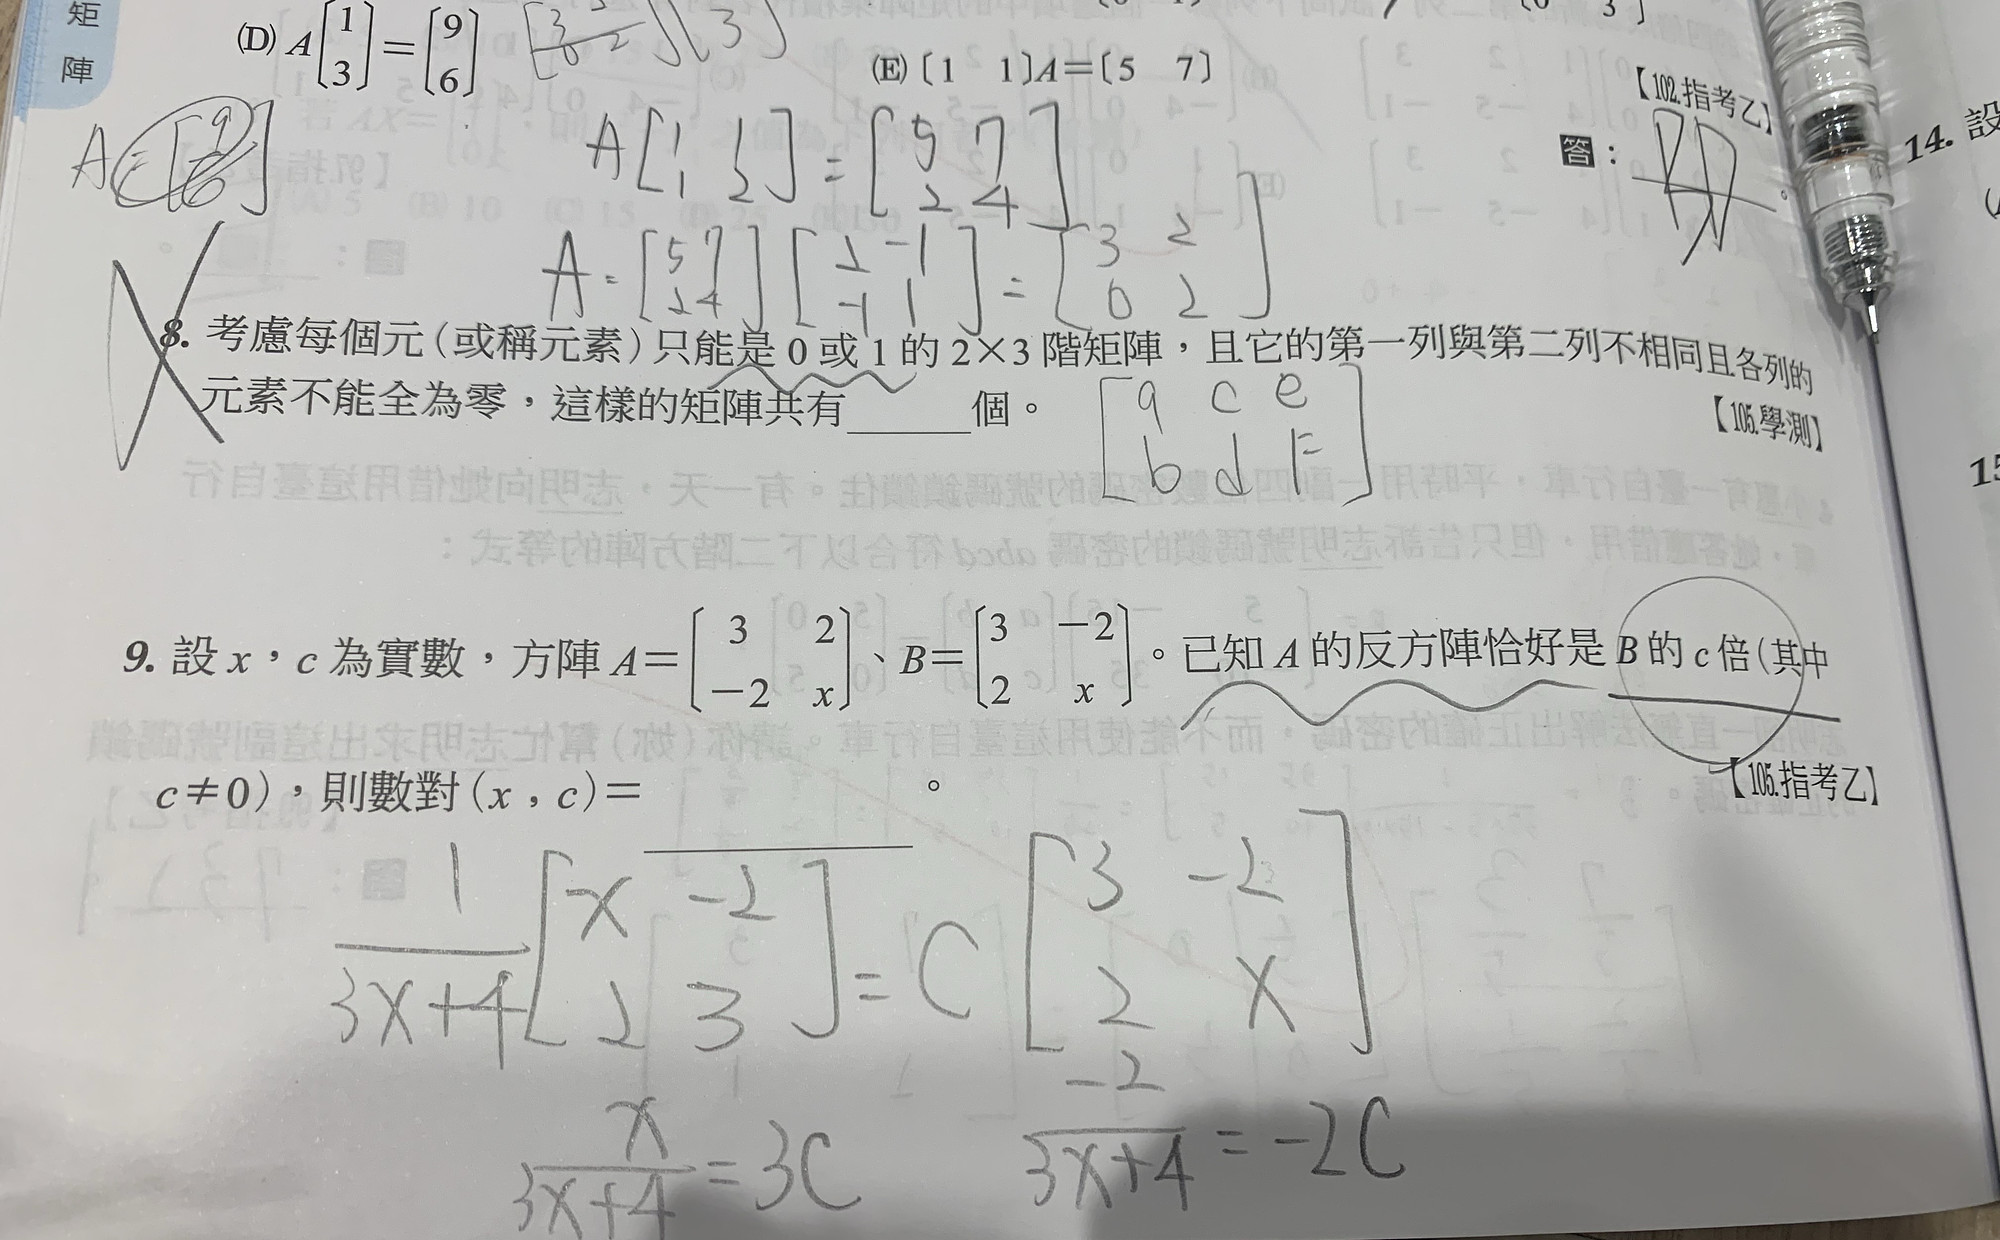 矩
陣
(D) A[1 3]=[9 6]
(E) [1 1]A=[5 7]
【102.指考乙】
答：
A[1 1 1 2] = [5 7 2 4]
A=[5 7 2 4][2 -1 -1 1]=[3 2 0 2]
8. 考慮每個元(或稱元素)只能是 0 或 1 的 2×3 階矩陣，且它的第一列與第二列不相同且各列的
元素不能全為零，這樣的矩陣共有______個。
【105.學測】
[a c e
b d F]
9. 設 x，c 為實數，方陣 A=[3 2 -2 x]、B=[3 -2 2 x]。已知 A 的反方陣恰好是 B 的 c 倍(其中
c≠0)，則數對(x，c)=______。
【105.指考乙】
1/3x+4 [x -2 2 3] = C [3 -2 2 x]
x/3x+4 = 3C
-2/3x+4 = -2C
14. 設
15